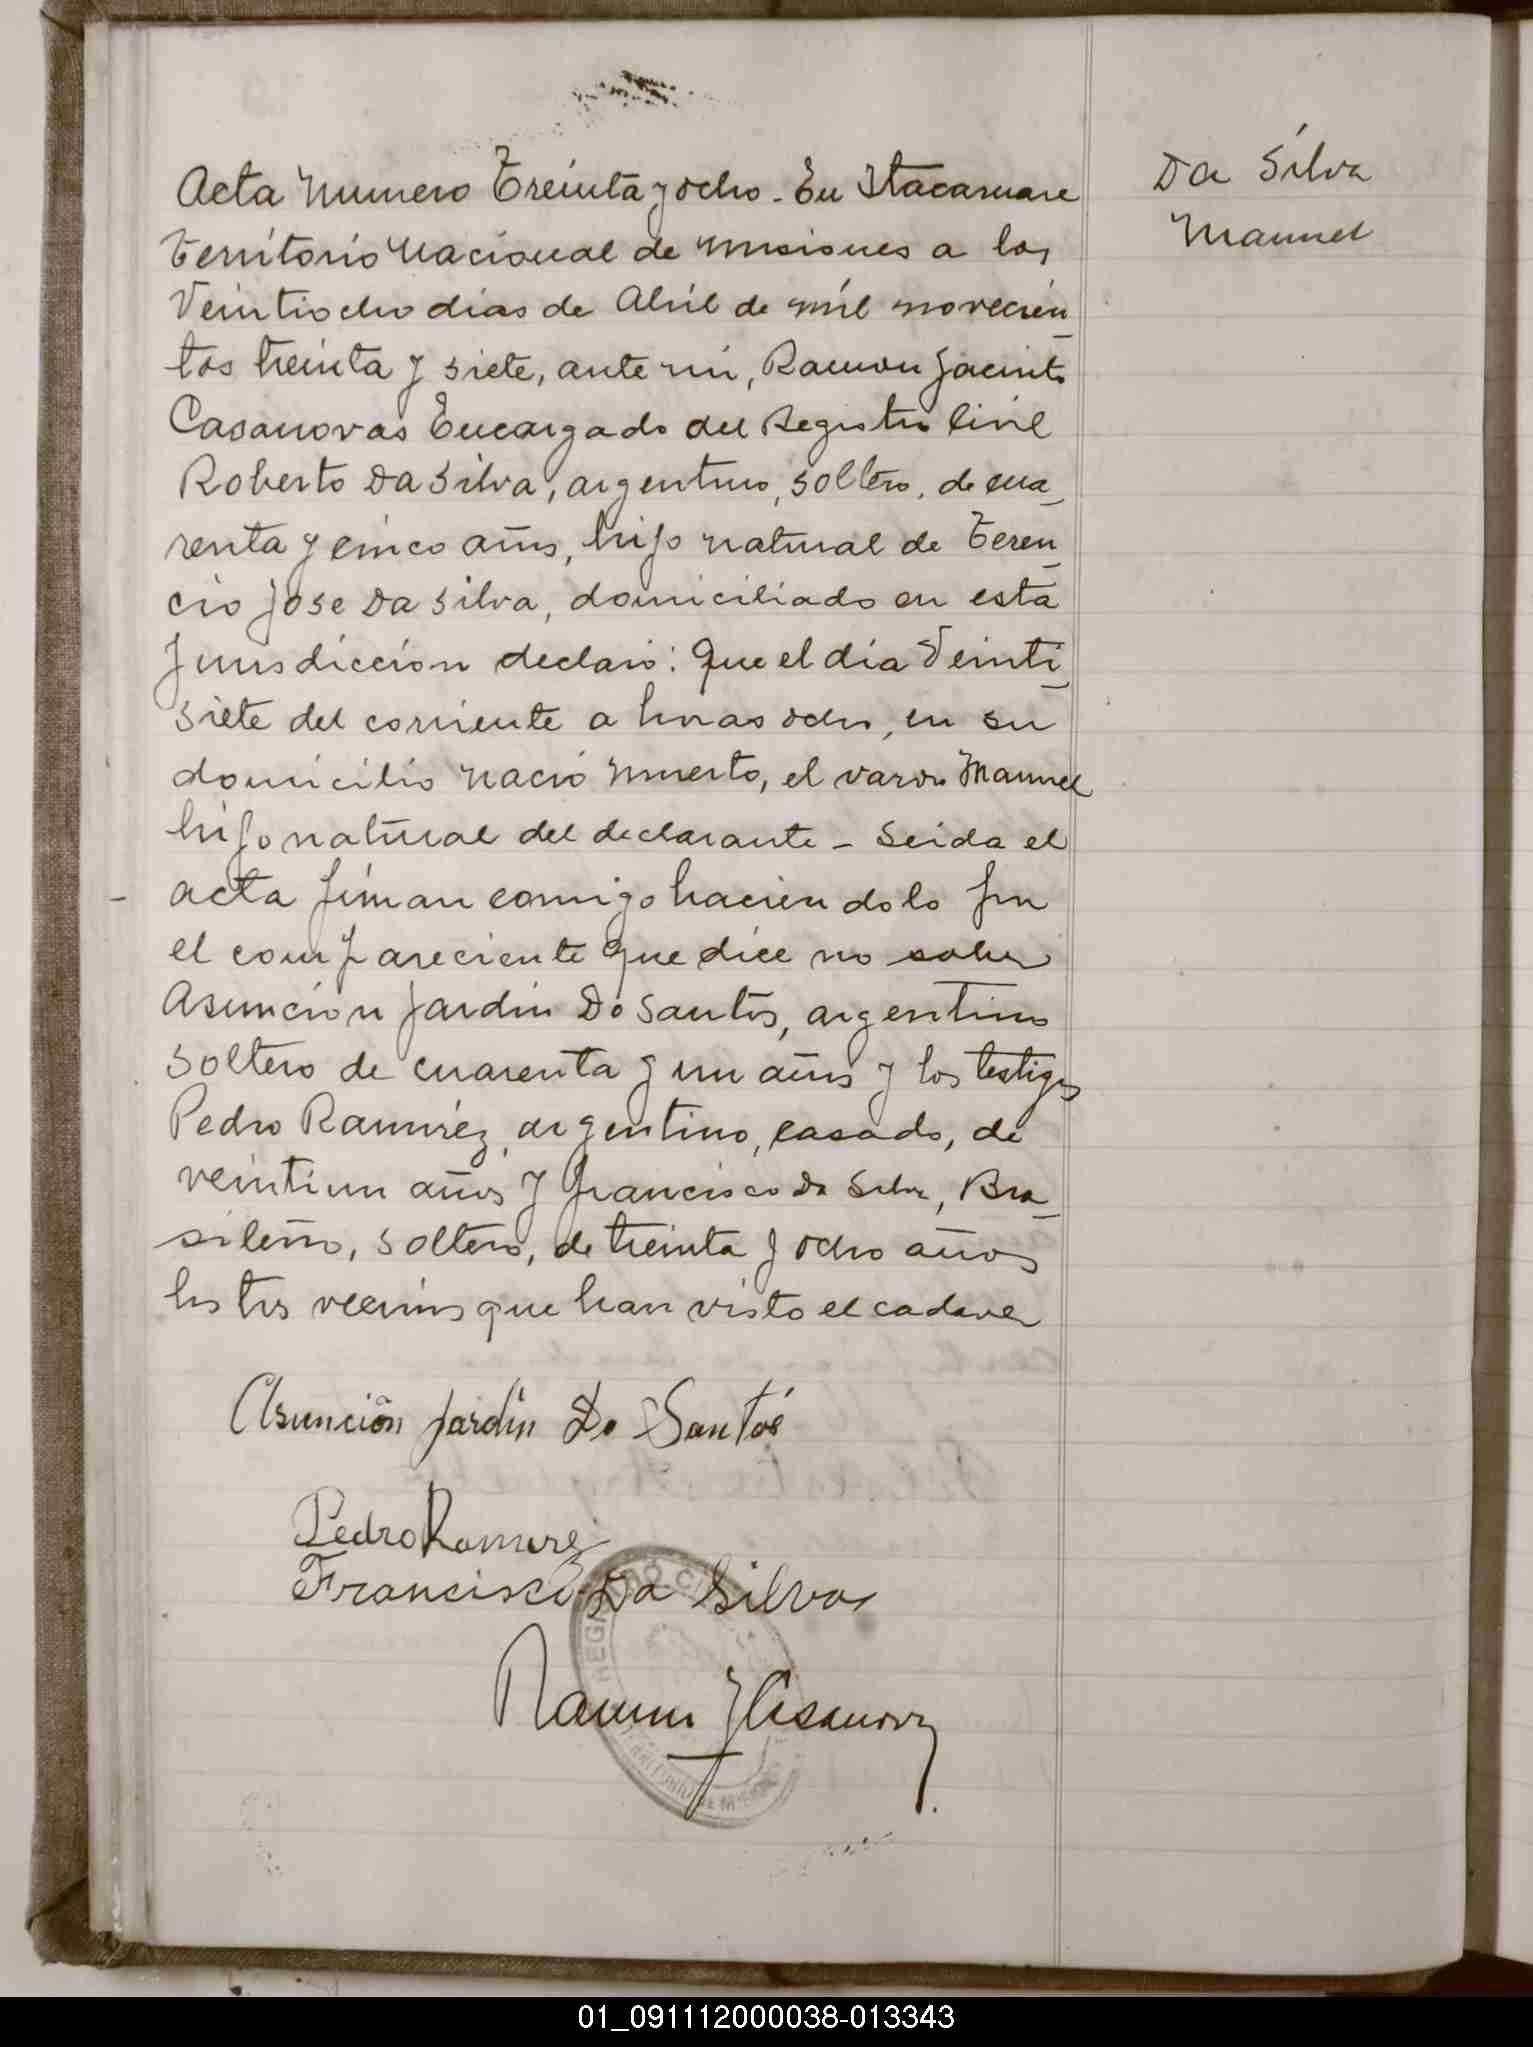 Da Silva
Manuel
Acta Numero Treinta y ocho - En Itacaruare
Territorio Nacional de Misiones a los
Veintiocho dias de Abril de mil novecien_
tos treinta y siete, ante mi, Ramon Jacinto
Casanovas Encargado del Registro Civil
Roberto Da Silva, argentino, soltero, de cua_
renta y cinco años, hijo natural de Teren_
cio Jose Da Silva, domiciliado en esta
Jurisdiccion declaró: Que el dia Veinti_
siete del corriente a horas ocho, en su
domicilio nació muerto, el varon Manuel
hijo natural del declarante - Leida el
acta firman conmigo haciendolo por
el compareciente que dice no saber
Asuncion Jardin Do Santos, argentino
soltero de cuarenta y un años y los testigos
Pedro Ramirez, argentino, casado, de
veintiun años y Francisco Da Silva, Bra_
sileño, soltero, de treinta y ocho años
los tres vecinos que han visto el cadaver
Asunción Jardin Do Santos
Pedro Ramirez
Francisco Da Silva
Ramon J Casanovas
REGISTRO CIVIL
01_091112000038-013343